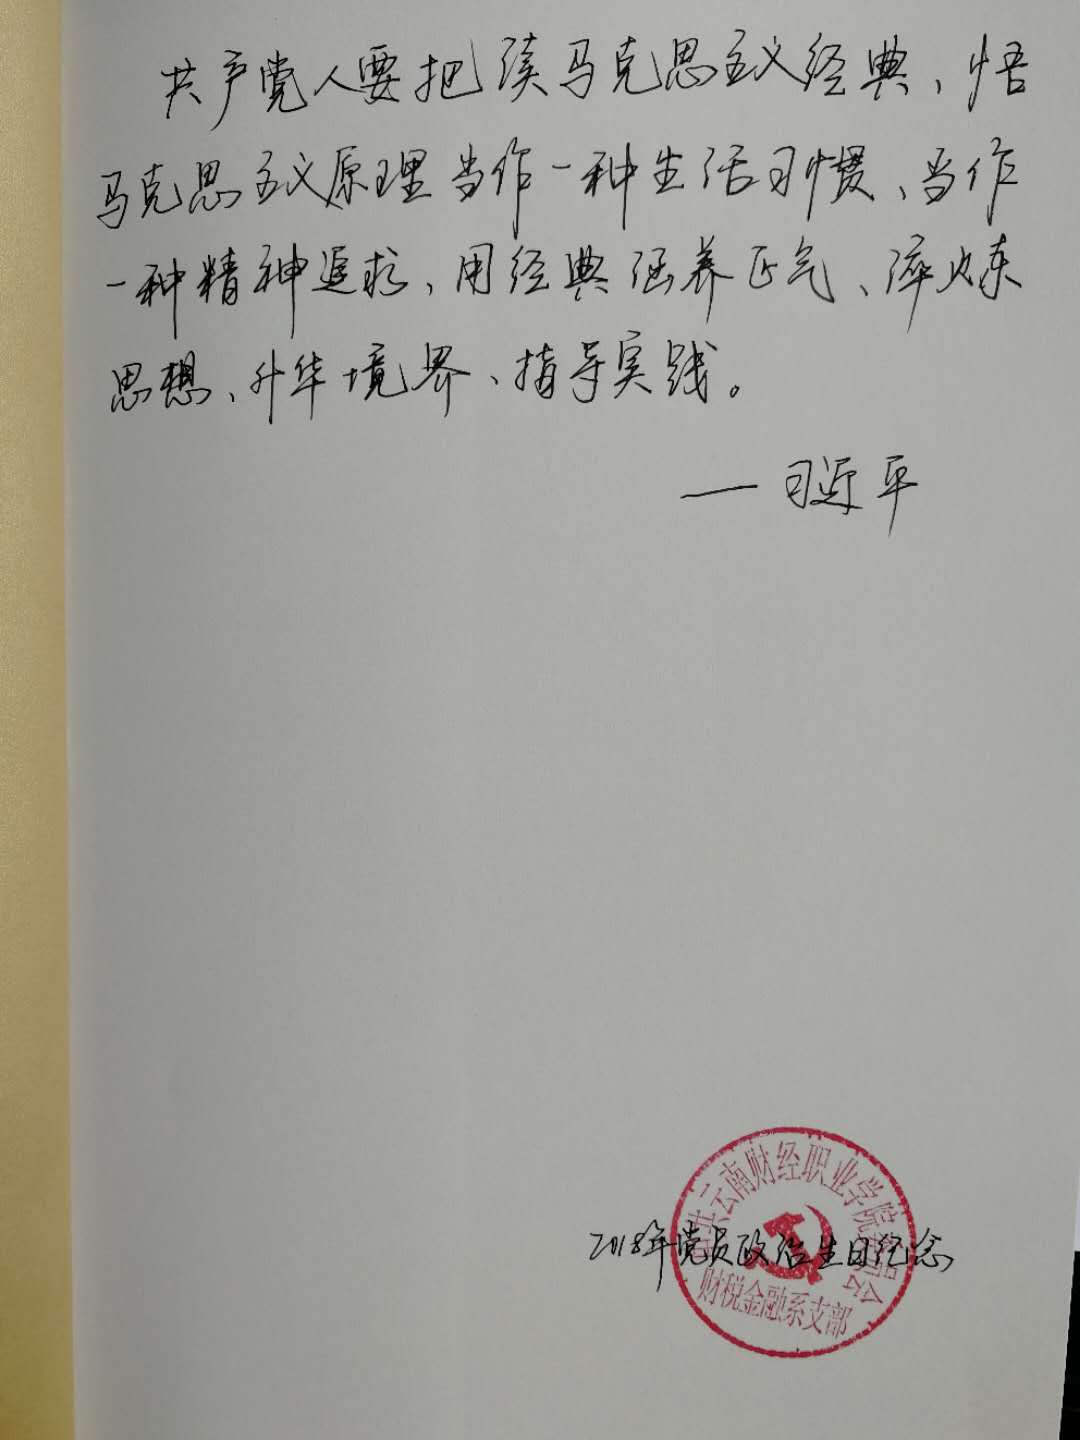 共产党人要把读马克思主义经典、悟
马克思主义原理当作一种生活习惯、当作
一种精神追求，用经典涵养正气、淬炼
思想、升华境界、指导实践。
——习近平
中共云南财经职业学院委员会
2018年党员政治生日纪念
财税金融系支部